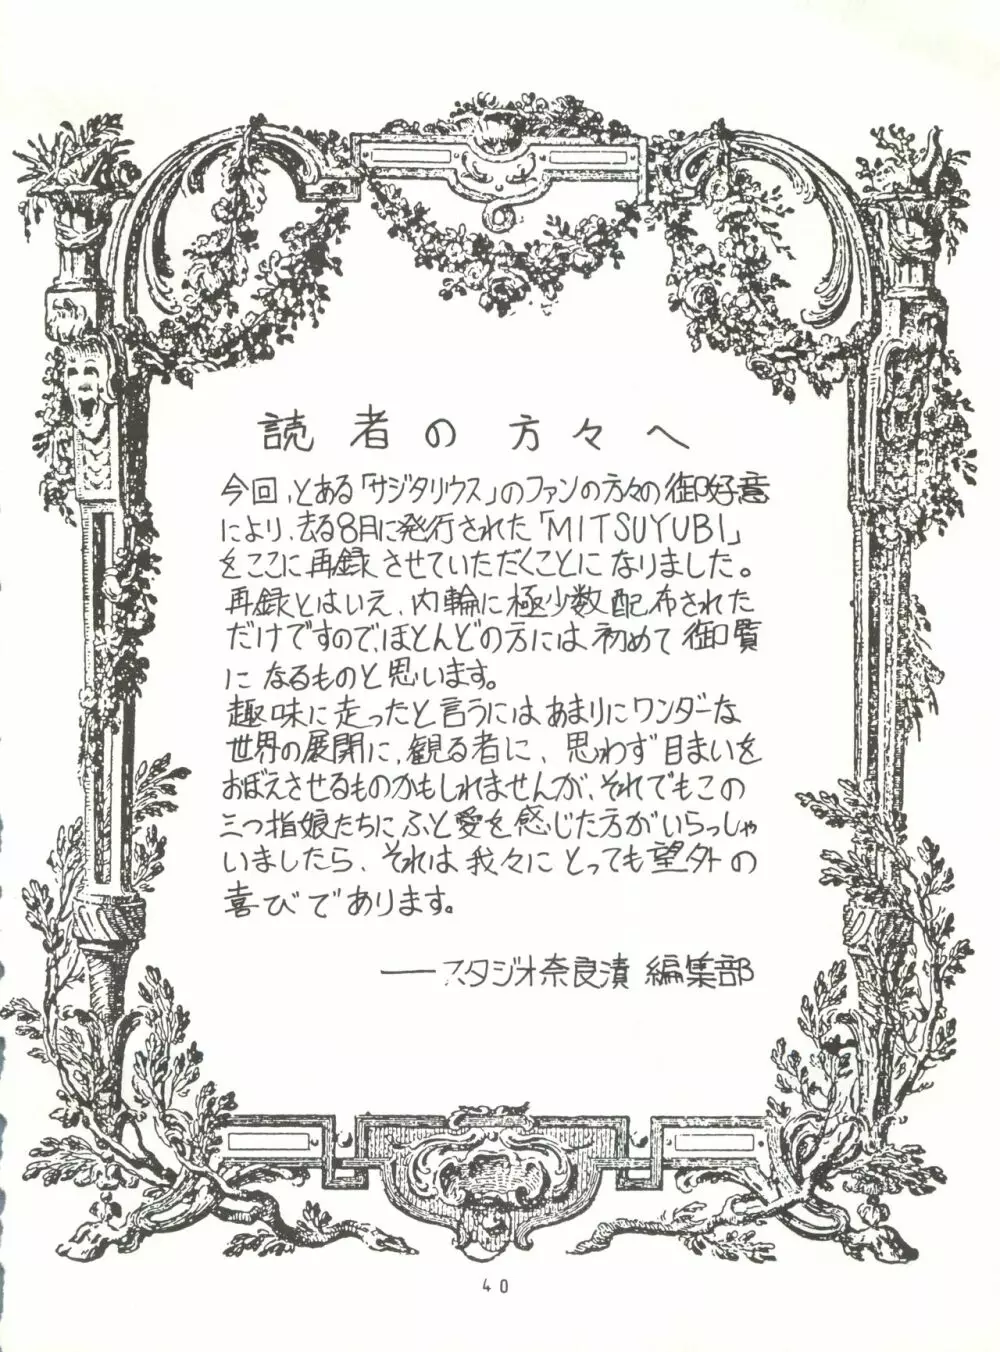 読者の方々へ
今回、とある「サジタリウス」のファンの方々の御好意
により、去る8月に発行された「MITSUYUBI」
をここに再録させていただくことになりました。
再録とはいえ、内輪に極少数配布された
だけですので、ほとんどの方には初めて御覧
になるものと思います。
趣味に走ったと言うにはあまりにワンダーな
世界の展開に、観る者に、思わず目まいを
おぼえさせるものかもしれませんが、それでもこの
三つ指娘たちにふと愛を感じた方がいらっしゃ
いましたら、それは我々にとっても望外の
喜びであります。
──スタジオ奈良漬 編集部
40